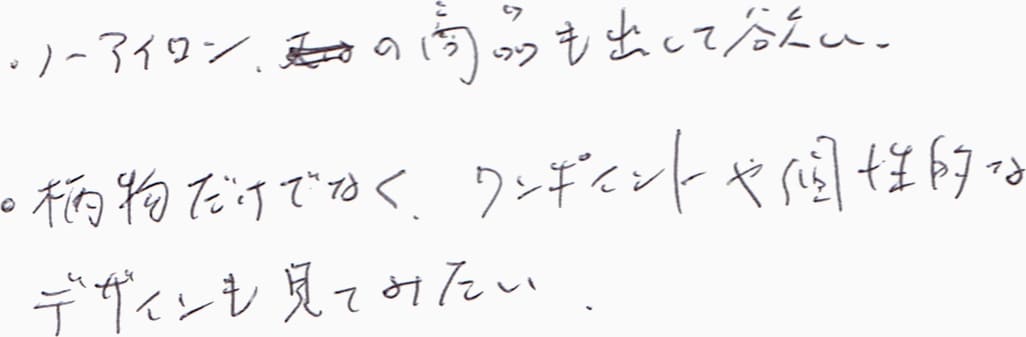 ・ノーアイロン、の商品も出して欲しい.
。柄物だけでなく、ワンポイントや個性的な
デザインも見てみたい.